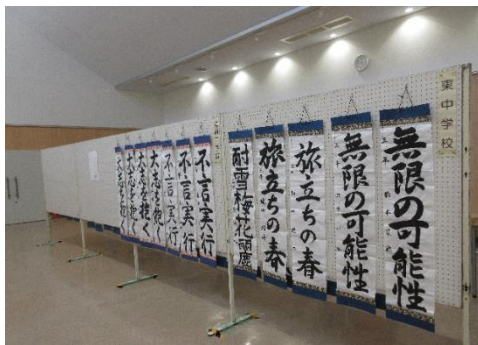 東中学校
無限の可能性
無限の可能性
旅立ちの春
旅立ちの春
耐雪梅花麗
不言実行
不言実行
不言実行
大志を抱く
大志を抱く
大志を抱く
大志を抱く